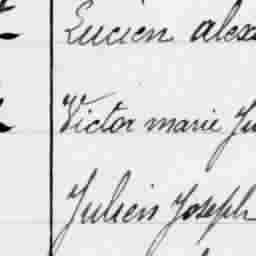 Lucien alex
Victor marie Ju
Julien Joseph